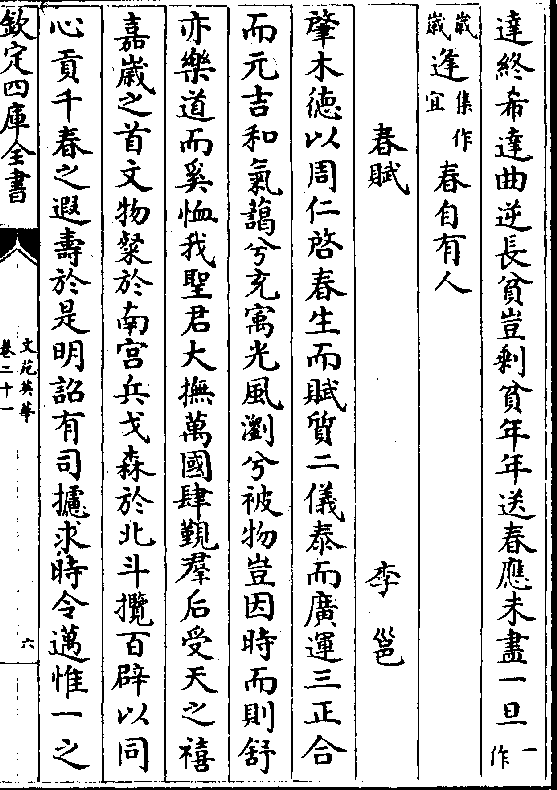 達終希達曲逆長貧豈剩貧年年送春應未盡一旦一作
歲歲逢集作宜春自有人
春賦 李邕
肇木德以周仁啓春生而賦質二儀泰而廣運三正合
而元吉和氣藹兮充寓光風瀏兮被物豈因時而則舒
亦樂道而奚恤我聖君大撫萬國肆覲羣后受天之禧
嘉嵗之首文物粲於南宫兵戈森於北斗攬百辟以同
心貢千春之遐壽於是明詔有司攄求時令邁惟一之
欽定四庫全書
文苑英華
卷二十一
六